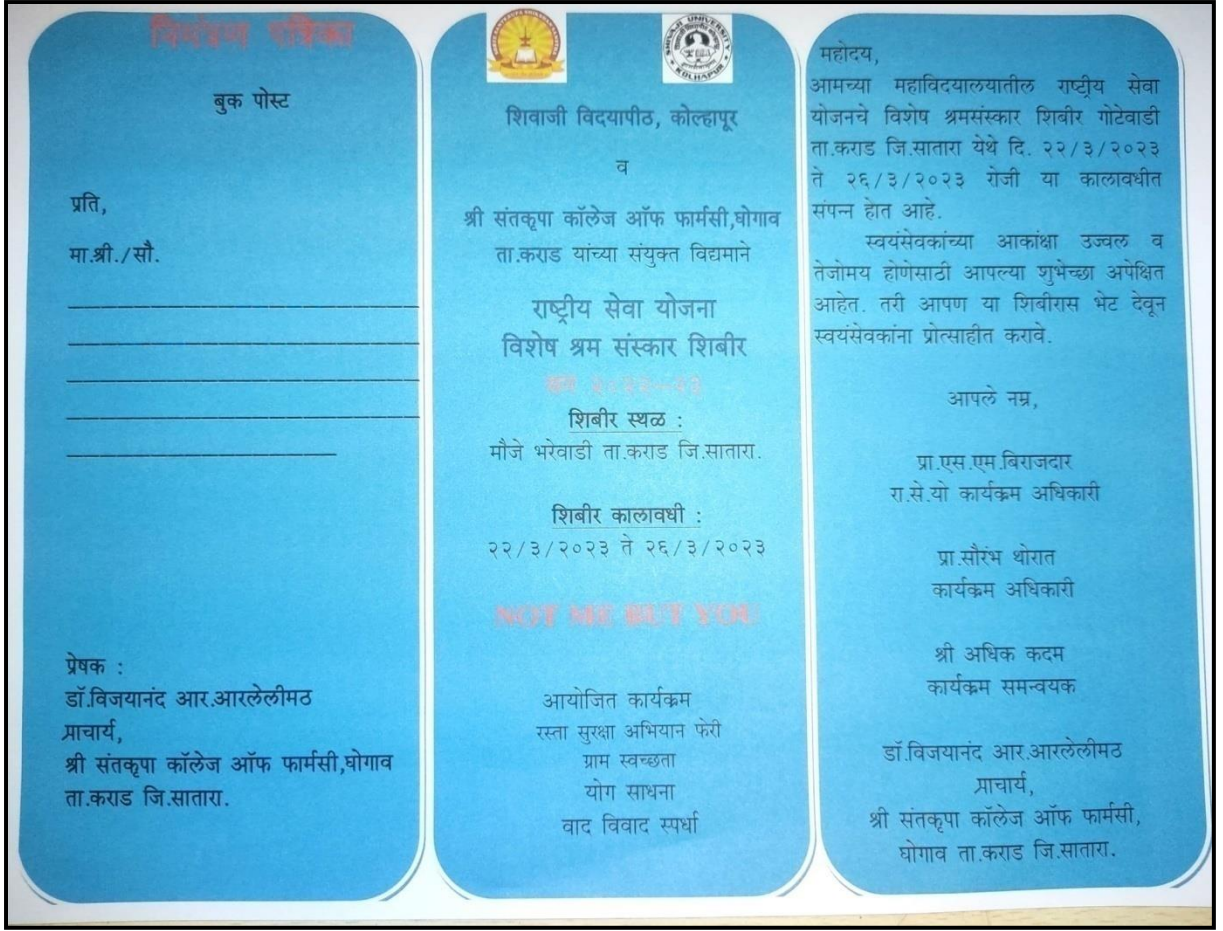 निमंत्रण पत्रिका
बुक पोस्ट
प्रति,
मा.श्री./सौ.
प्रेषक :
डॉ.विजयानंद आर.आरलेलीमठ
प्राचार्य,
श्री संतकृपा कॉलेज ऑफ फार्मसी,घोगाव
ता.कराड जि.सातारा.
SHIVAJI UNIVERSITY
KOLHAPUR
शिवाजी विदयापीठ, कोल्हापूर
व
श्री संतकृपा कॉलेज ऑफ फार्मसी,घोगाव
ता.कराड यांच्या संयुक्त विद्यमाने
राष्ट्रीय सेवा योजना
विशेष श्रम संस्कार शिबीर
शिबीर स्थळ :
मौजे भरेवाडी ता.कराड जि.सातारा.
शिबीर कालावधी :
२२/३/२०२३ ते २६/३/२०२३
NOT ME BUT YOU
आयोजित कार्यक्रम
रस्ता सुरक्षा अभियान फेरी
ग्राम स्वच्छता
योग साधना
वाद विवाद स्पर्धा
महोदय,
आमच्या महाविदयालयातील राष्ट्रीय सेवा
योजनचे विशेष श्रमसंस्कार शिबीर गोटेवाडी
ता.कराड जि.सातारा येथे दि. २२/३/२०२३
ते २६/३/२०२३ रोजी या कालावधीत
संपन्न होत आहे.
स्वयंसेवकांच्या आकांक्षा उज्वल व
तेजोमय होणेसाठी आपल्या शुभेच्छा अपेक्षित
आहेत. तरी आपण या शिबीरास भेट देवून
स्वयंसेवकांना प्रोत्साहीत करावे.
आपले नम्र,
प्रा.एस.एम.बिराजदार
रा.से.यो कार्यक्रम अधिकारी
प्रा.सौरंभ थोरात
कार्यक्रम अधिकारी
श्री अधिक कदम
कार्यक्रम समन्वयक
डॉ.विजयानंद आर.आरलेलीमठ
प्राचार्य,
श्री संतकृपा कॉलेज ऑफ फार्मसी,
घोगाव ता.कराड जि.सातारा.